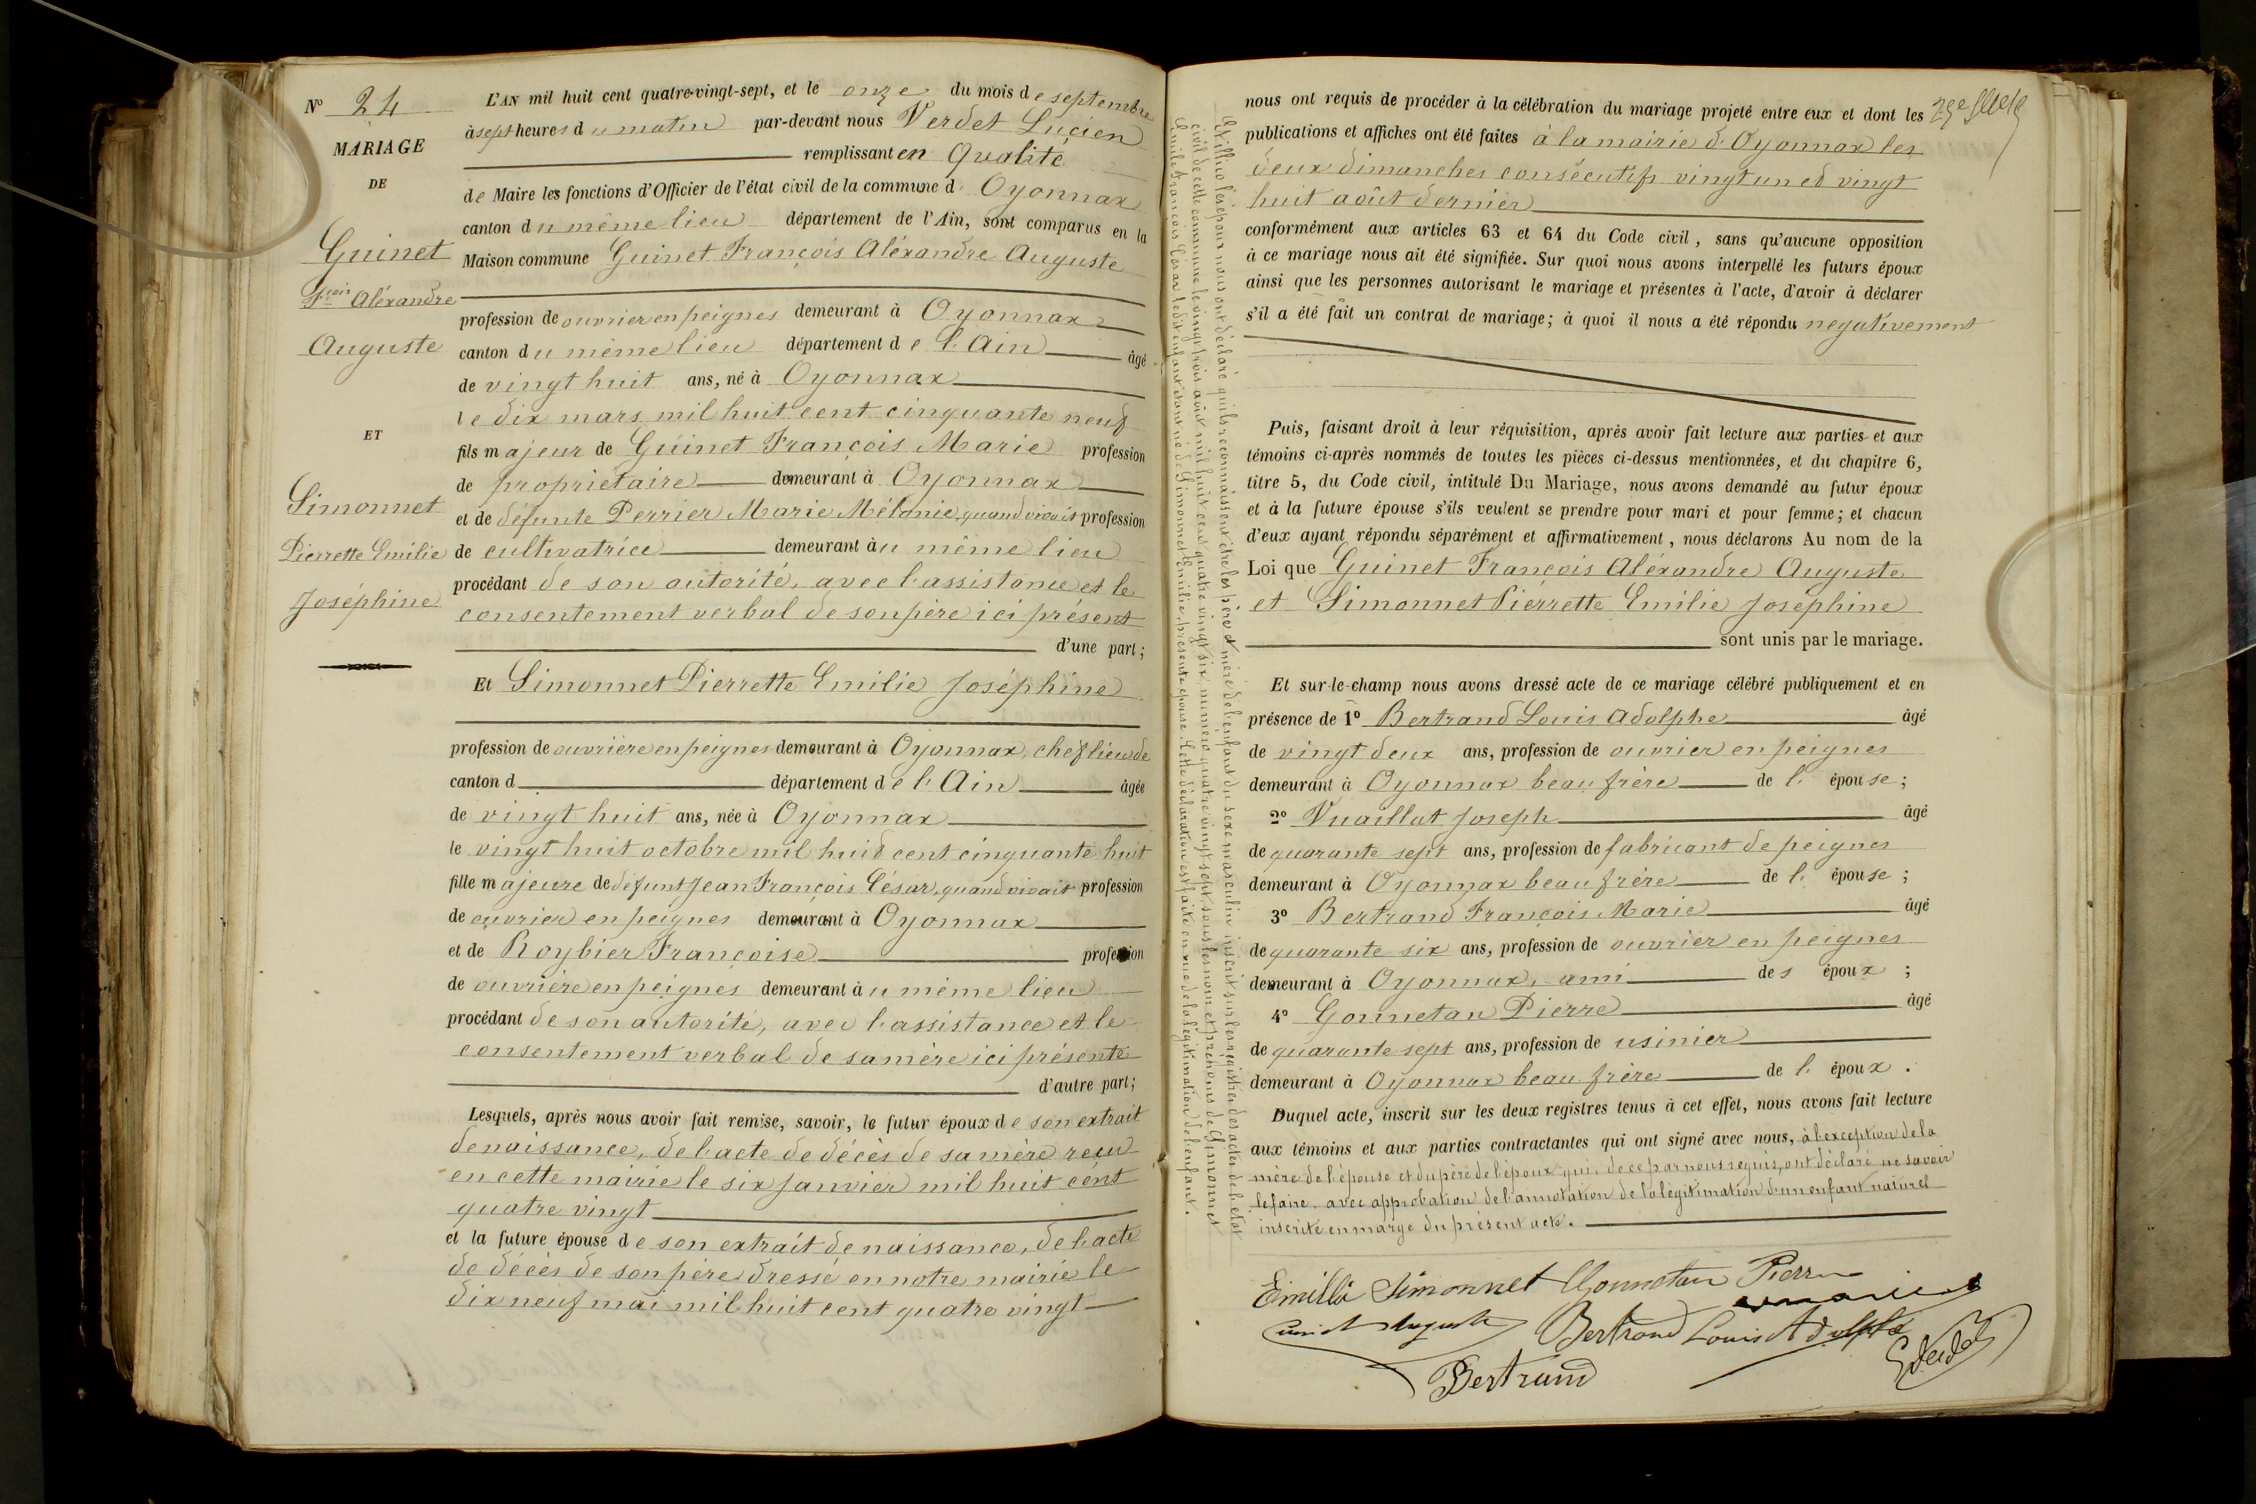 N° 24
MARIAGE
DE
Guinet
Fcois Aléxandre
Auguste
ET
Simonnet
Pierrette Emilie
Joséphine
L'AN mil huit cent quatre-vingt-sept, et le onze du mois de septembre
à sept heures du matin par-devant nous Verdet Lucien
remplissant en qualité
de Maire les fonctions d'Officier de l'état civil de la commune d' Oyonnax
canton du même lieu département de l'Ain, sont comparus en la
Maison commune Guinet François Aléxandre Auguste
profession de ouvrier en peignes demeurant à Oyonnax
canton du même lieu département de l'Ain âgé
de vingt huit ans, né à Oyonnax
le dix mars mil huit cent cinquante neuf
fils majeur de Guinet François Marie profession
de propriétaire demeurant à Oyonnax
et de défunte Perrier Marie Mélanie, quand vivait profession
de cultivatrice demeurant au même lieu
procédant de son autorité, avec l'assistance et le
consentement verbal de son père ici présent
d'une part;
Et Simonnet Pierrette Emilie Joséphine
profession de ouvrière en peignes demeurant à Oyonnax, chef lieu de
canton d département de l'Ain âgée
de vingt huit ans, née à Oyonnax
le vingt huit octobre mil huit cent cinquante huit
fille majeure de défunt Jean François César, quand vivait profession
de ouvrier en peignes demeurant à Oyonnax
et de Roybier Françoise profession
de ouvrière en peignes demeurant au même lieu
procédant de son autorité, avec l'assistance et le
consentement verbal de sa mère ici présente
d'autre part;
Lesquels, après nous avoir fait remise, savoir, le futur époux de son extrait
de naissance, de l'acte de décès de sa mère reçu
en cette mairie le six janvier mil huit cent
quatre vingt
et la future épouse de son extrait de naissance, de l'acte
de décès de son père dressé en notre mairie le
dix neuf mai mil huit cent quatre vingt
Et illico les époux nous ont déclaré qu'ils reconnaissent être les père et mère de l'enfant du sexe masculin inscrit sur les registres des actes de l'état
civil de cette commune le vingt trois août mil huit cent quatre vingt six numéro quatre vingt sept, sous les noms et prénoms de Simonnet
Emile François César, ledit enfant étant né de Simonnet Emilie, présente épouse. Cette déclaration est faite en vue de la légitimation de l'enfant.
nous ont requis de procéder à la célébration du mariage projeté entre eux et dont les
publications et affiches ont été faites à la mairie d'Oyonnax les
deux dimanches consécutifs vingt un et vingt
huit août dernier
conformément aux articles 63 et 64 du Code civil, sans qu'aucune opposition
à ce mariage nous ait été signifiée. Sur quoi nous avons interpellé les futurs époux
ainsi que les personnes autorisant le mariage et présentes à l'acte, d'avoir à déclarer
s'il a été fait un contrat de mariage; à quoi il nous a été répondu négativement
Puis, faisant droit à leur réquisition, après avoir fait lecture aux parties et aux
témoins ci-après nommés de toutes les pièces ci-dessus mentionnées, et du chapitre 6,
titre 5, du Code civil, intitulé Du Mariage, nous avons demandé au futur époux
et à la future épouse s'ils veulent se prendre pour mari et pour femme; et chacun
d'eux ayant répondu séparément et affirmativement, nous déclarons Au nom de la
Loi que Guinet François Aléxandre Auguste
et Simonnet Pierrette Emilie Joséphine
sont unis par le mariage.
Et sur-le-champ nous avons dressé acte de ce mariage célébré publiquement et en
présence de 1° Bertrand Louis Adolphe âgé
de vingt deux ans, profession de ouvrier en peignes
demeurant à Oyonnax beau frère de l' épouse;
2° Vuaillat Joseph âgé
de quarante sept ans, profession de fabricant de peignes
demeurant à Oyonnax beau frère de l' épouse;
3° Bertrand François Marie âgé
de quarante six ans, profession de ouvrier en peignes
demeurant à Oyonnax, ami des époux;
4° Gonnetan Pierre âgé
de quarante sept ans, profession de usinier
demeurant à Oyonnax beau frère de l' époux.
Duquel acte, inscrit sur les deux registres tenus à cet effet, nous avons fait lecture
aux témoins et aux parties contractantes qui ont signé avec nous, à l'exception de la
mère de l'épouse et du père de l'époux qui, de ce par nous requis, ont déclaré ne savoir
le faire. avec approbation de l'annotation de la légitimation d'un enfant naturel
inscrite en marge du présent acte.
Emilie Simonnet Gonnetan Pierre
Guinet Auguste Bertrand Louis Adolphe
Bertrand